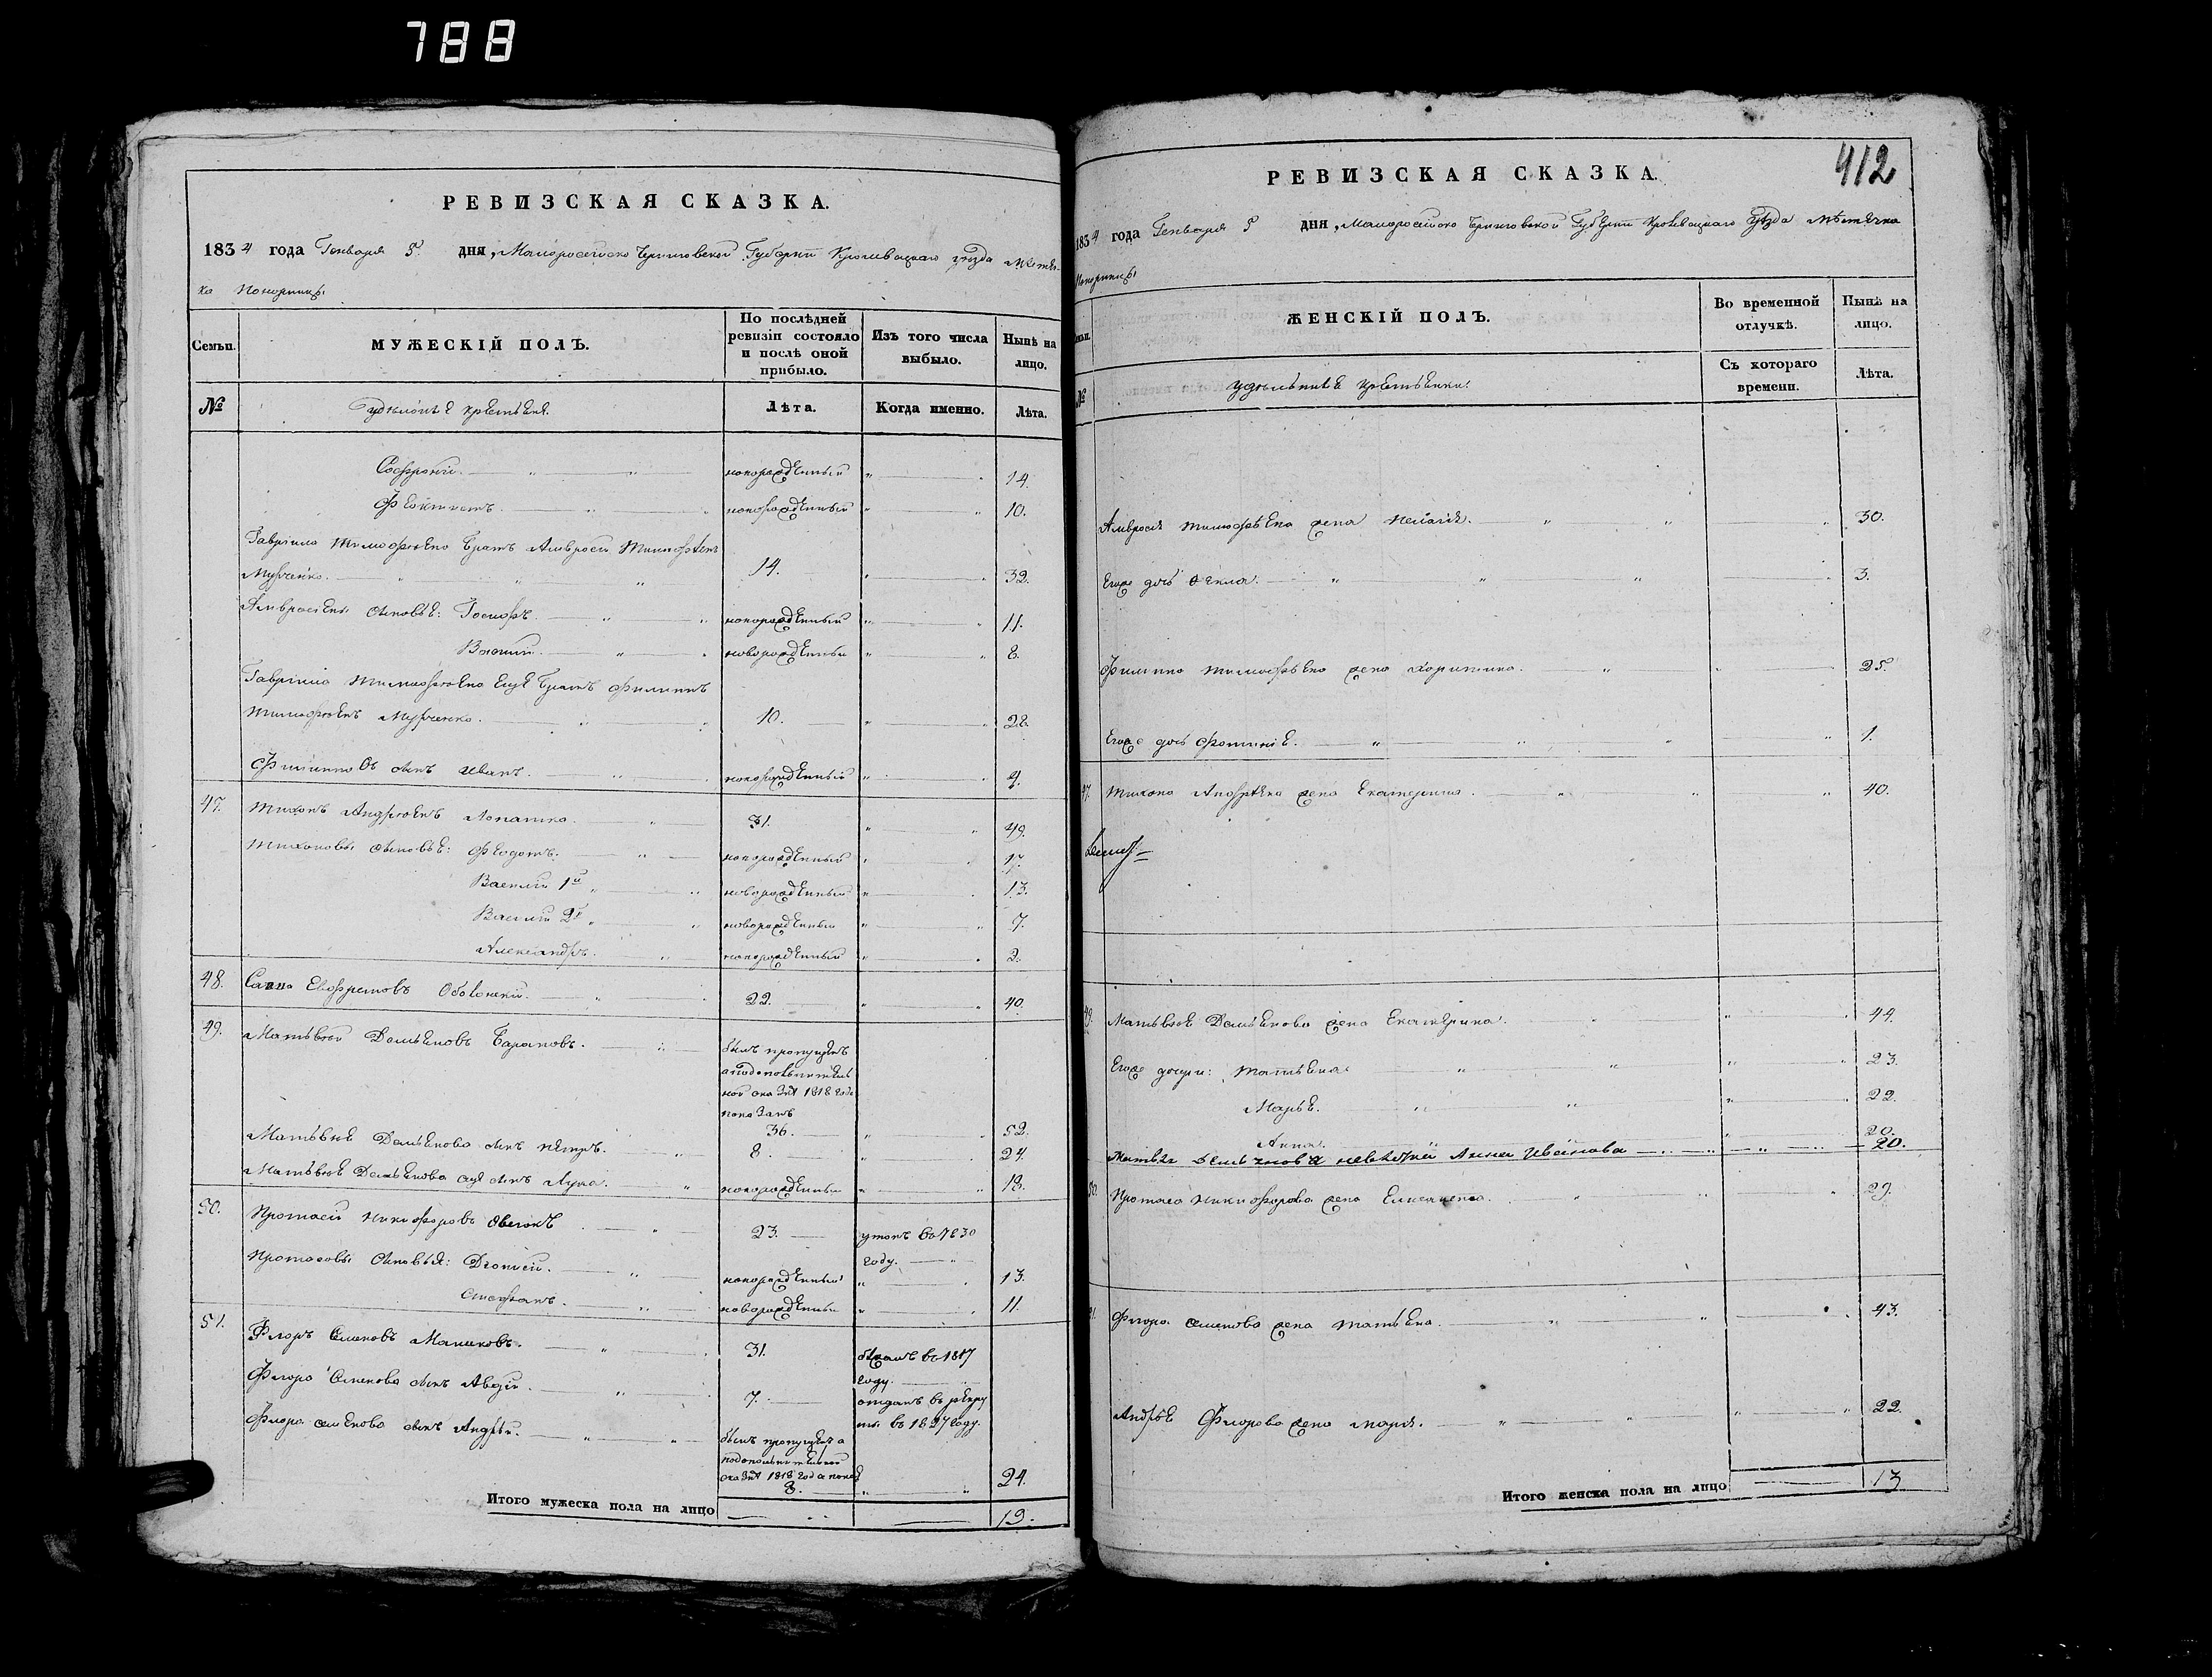 788
РЕВИЗСКАЯ СКАЗКА.
1834 года Генваря 5 дня, Малоросейско Черниговской Губерни Кролевецкаго уезда Местеч-
ка Понорницы
Семьи. МУЖЕСКІЙ ПОЛЪ. По послѣдней ревизіи состояло и послѣ оной прибыло. Изъ того числа выбыло. Нынѣ на лицо.
№ Удѣльные крестьяне. Лѣта. Когда именно. Лѣта.
Софроній. новорожденный 14.
Феоктистъ новорожденный 10.
Гавріила Тимофеева братъ Амвросій Тимофеевъ
14. 32.
Амвросіевы сыновье: Іосифъ. новорожденный 11.
Василій. новорожденный 8.
Гавріила Тимофеева еще братъ Филиппъ
Тимофеевъ 10. 28.
Филипповъ сынъ Иванъ. новорожденный 4.
47. Тихонъ Андреевъ Лопатко. 31. 49.
Тихоновы сыновье: Феодотъ. новорожденный 17.
Василій 1й новорожденный 13.
Василій 2й новорожденный 7.
Александръ. новорожденный 2.
48. Савва Оболонскій. 22. 40.
49. Матьвей Демьеновъ Барановъ. былъ пропущенъ
а по дополнитель
ной сказкѣ 1818 года
показанъ
36. 52.
Матьвее Демьенова сынъ Петръ. 8. 24.
Матьвее Демьенова еще сынъ Лука. новорожденный 13.
50. Протасій Никифоровъ 23. утопъ во 1830
году.
Протасовы сыновья: Діонисій. новорожденный 13.
Стефанъ. новорожденный 11.
51. Флоръ Семеновъ Малиновъ. 31. бѣжалъ во 1817
году.
Флора Семенова сынъ Авдій. 7. отданъ въ рекру
ты въ 1827 году.
Флора Семенова сынъ Андрѣй. былъ пропущенъ а
по дополнительной
сказкѣ 1818 года показ
8. 24.
Итого мужеска пола на лицо 19.
412
РЕВИЗСКАЯ СКАЗКА.
1834 года Генваря 5 дня, Малоросейско Черниговской Губерни Кролевецкаго уезда Местечка
Понорницы
Семьи. ЖЕНСКІЙ ПОЛЪ. Во временной отлучкѣ. Нынѣ на лицо.
№ Удѣльные крестьенки. Съ котораго времени. Лѣта.
Амвросія Тимофеева жена Пелагія. 30.
Егоже дочь Фекла. 3.
Филиппа Тимофеева жена Харитина. 25.
Егоже дочь Фотиніе. 1.
47. Тихона Андреева жена Екатерина. 40.
49. Матьвее Демьенова жена Екатерина. 44.
Егоже дочери: Татьена 23.
Марье. 22.
Анна. 20.
Матвея Демьенова невестка Анна Иванова 20.
50. Протаса Никифорова жена 29.
51. Флора Семенова жена Татьена. 43.
Андрѣе Флорова жена Марія. 22.
Итого женска пола на лицо 13